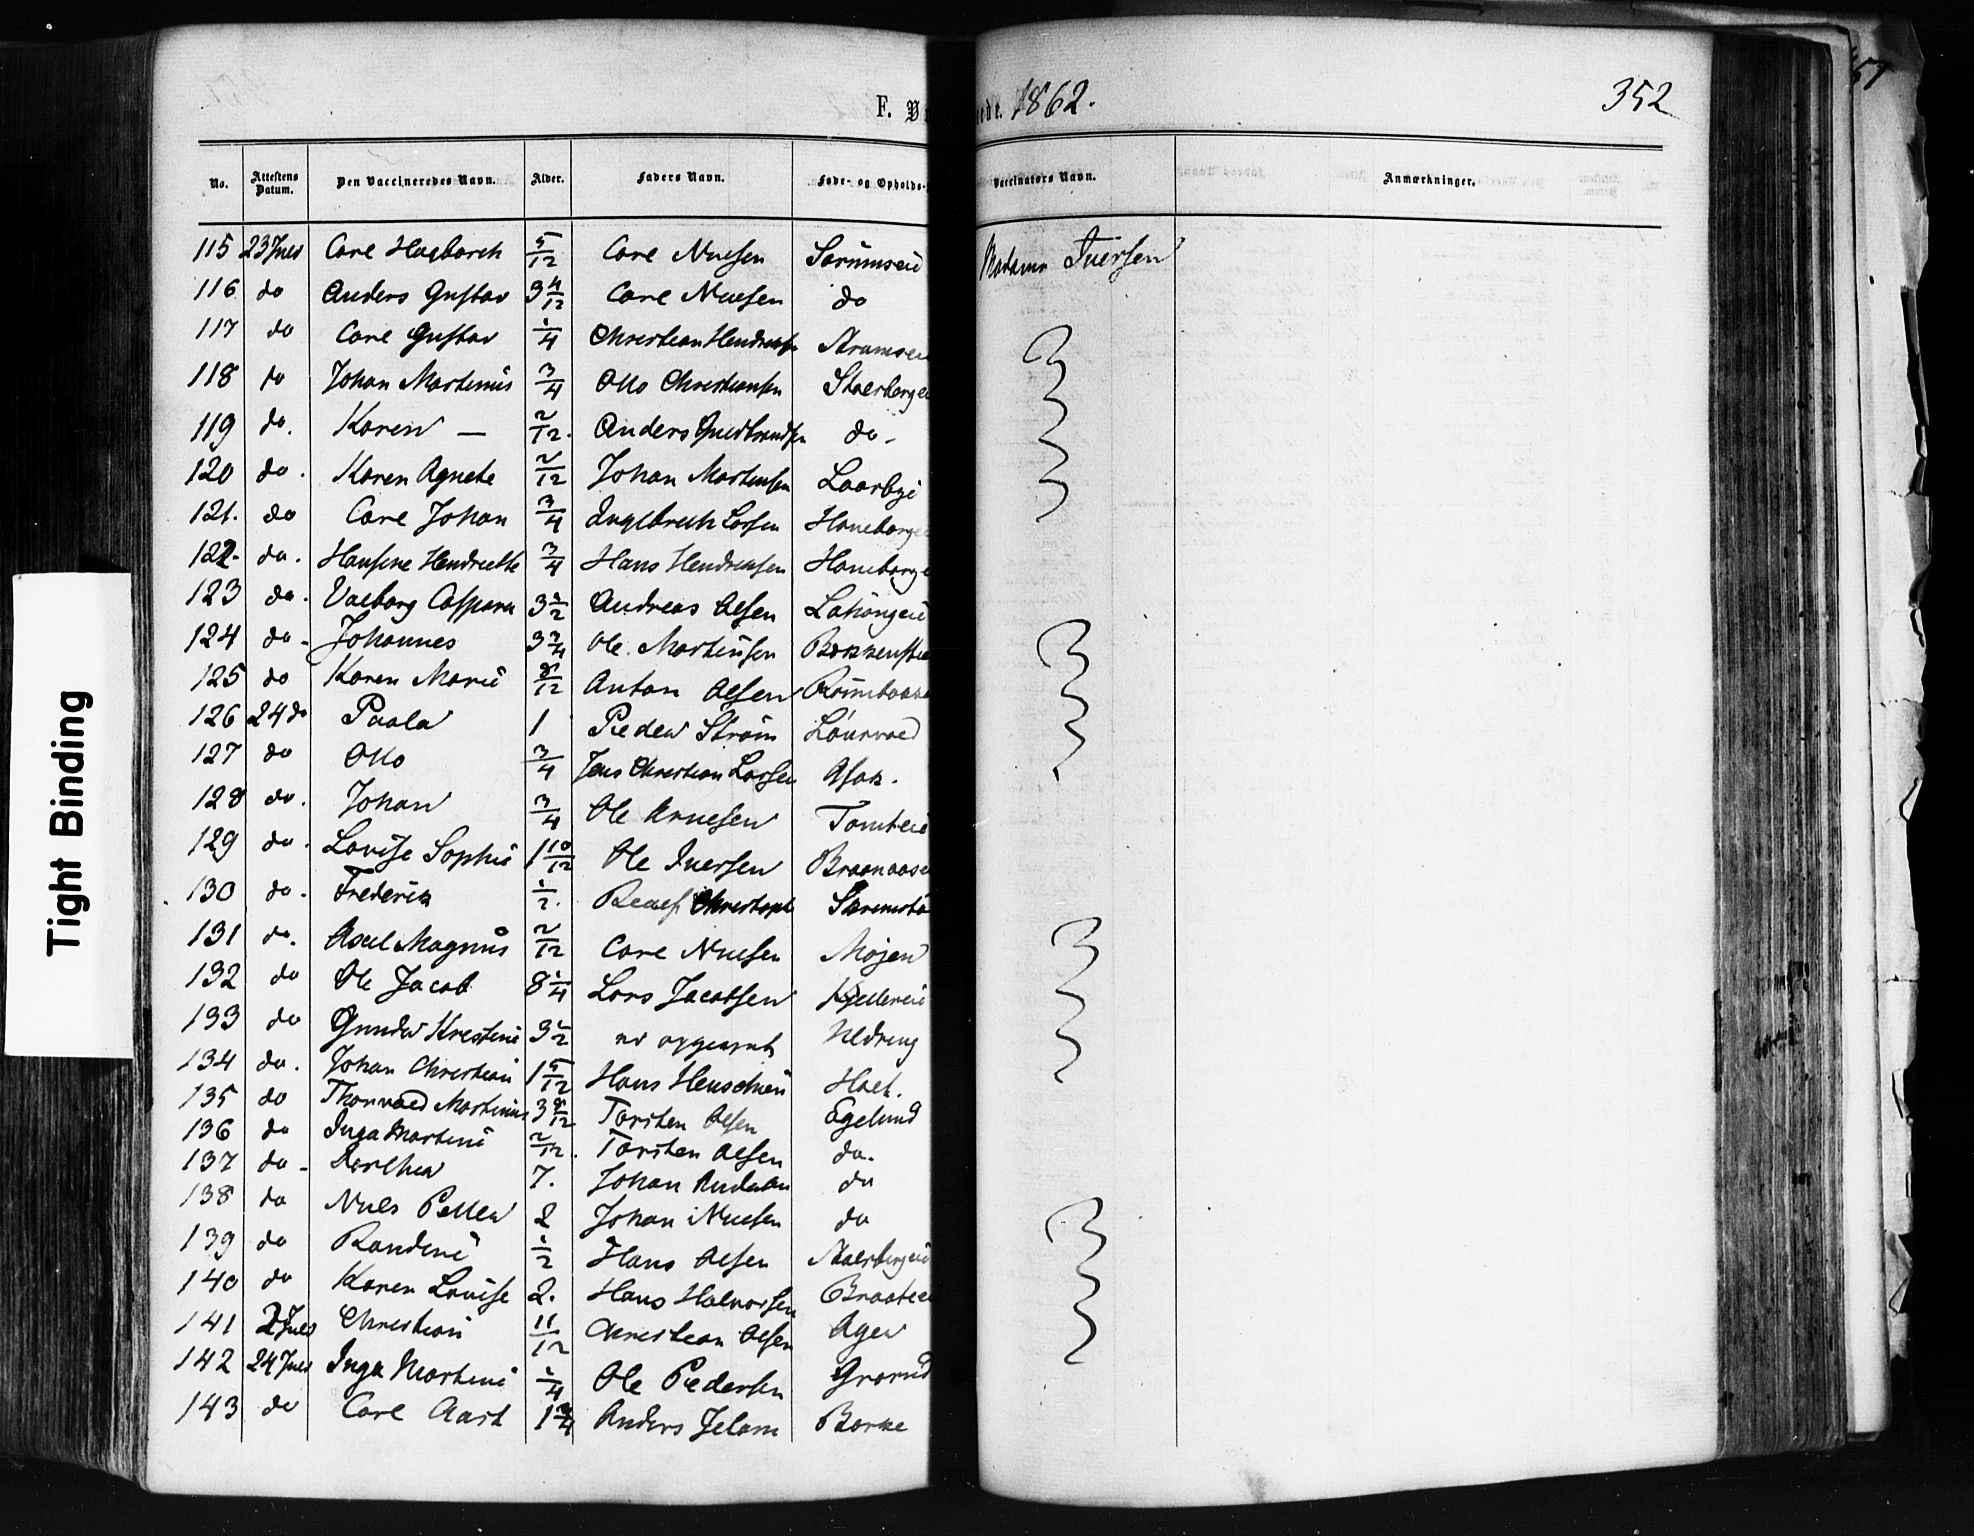 57
F. V
ede. 1862.
352
No. | Attestens Datum. | Den Vaccineredes Navn. | Alder. | Faders Navn. | Føde- og Opholds- | Vaccinators Navn. | Anmærkninger.
115 | 23 Juli | Carl Hagbarth | 5/12 | Carl Nielsen | | Madame Iversen
116 | do | Anders Gustav | 3 4/12 | Carl Nielsen | do
117 | do | Carl Gustav | 1/4 | Christian Hendriksen
118 | do | Johan Martinus | 3/4 | Otto Christiansen
119 | do. | Karen — | 2/12. | Anders Gudbrandsen | do-
120 | do. | Karen Agnete | 2/12 | Johan Martinsen | Laarbye
121. | do | Carl Johan | 3/4 | Engelbreth Larsen | Haneborge
122. | do. | Hansine Hendrette | 3/4 | Hans Hendriksen | Haneborge
123 | do. | Valborg Caspara | 3 1/2 | Andreas Olsen
124 | do- | Johannes | 3 3/4 | Ole Martinsen
125 | do | Karen Marie | 8/12 | Anton Olsen
126 | 24 do | Paala | 1 | Peder Strøm
127 | do | Otto | 3/4 | Jens Christian Larsen | Asak.
128 | do. | Johan | 3/4 | Ole | Tomteie
129 | do. | Lovise Sophie | 1 10/12 | Ole Iversen | Braanaase
130 | do. | Frederik | 1/2.
131 | do. | Axel Magnus | 2/12 | Carl Nielsen | Mojen
132 | do | Ole Jacob | 8 1/4 | Lars Jacobsen | Kjellereie
133 | do | Gunder Kristine | 3 1/2 | ei opgivet
134 | do. | Johan Christian | 1 5/12 | Hans
135 | do | Thorvald Martinius | 3 8/12 | Torsten Olsen | Egelund
136 | do | Inga Martine | 2/12. | Torsten Olsen | do.
137 | do- | Dorthea | 7. | Johan | do
138 | do | Niels Petter | 2 | Johan Nielsen | do
139 | do | Randine | 1/2 | Hans Olsen
140 | do | Karen Lovise | 2. | Hans Halvorsen | Braateie
141 | 2 Juli | Christian | 11/12 | Christian Olsen | Ager
142 | 24 Juli | Inga Martine | 1/4 | Ole Pedersen | Grorud
143 | do | Carl | 1 3/4 | Anders
Tight Binding